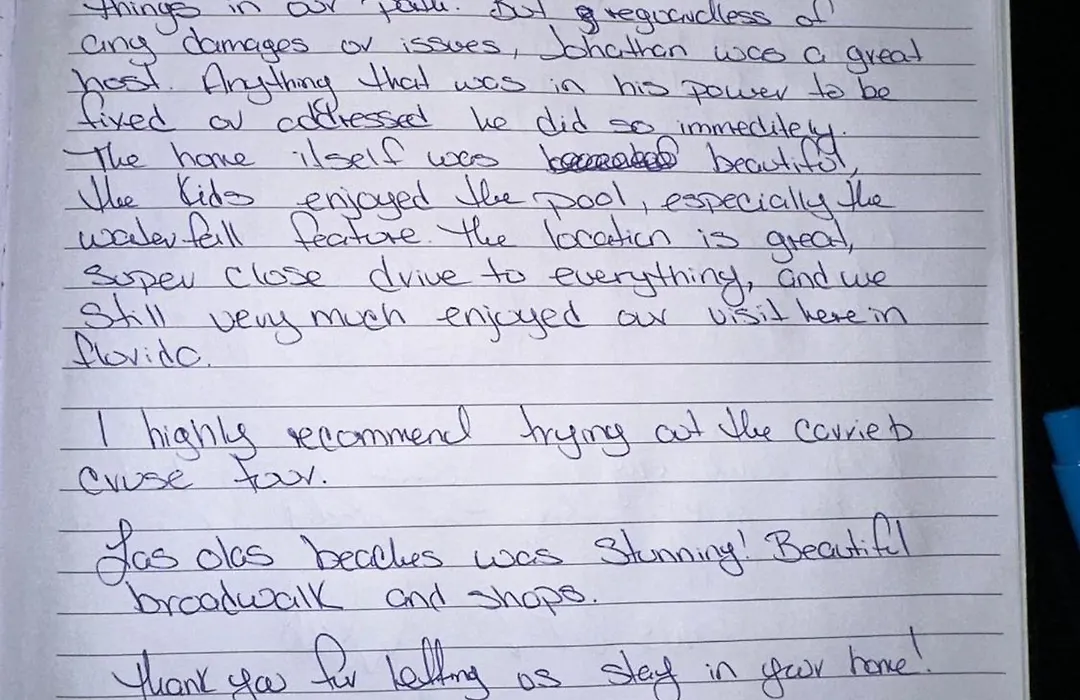 things in our path. But reguardless of
any damages or issues, Johathan was a great
host. Anything that was in his power to be
fixed or addressed he did so immeditely.
The home itself was beautiful,
the kids enjoyed the pool, especially the
waterfall feature. the location is great,
super close drive to everything, and we
still very much enjoyed our visit here in
florida.
I highly recommend trying out the carrieb
cruse tour.
Las olas beaches was Stunning! Beautiful
broadwalk and shops.
thank you for letting us stay in your home!